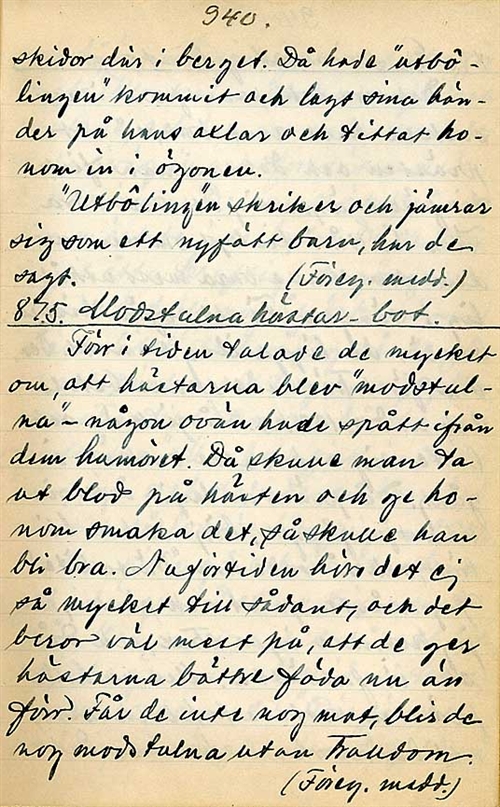 940.
skidor där i berget. Då hade "utbö-
lingen" kommit och lagt sina hän-
der på hans axlar och tittat ho-
nom in i ögonen.
"Utbölingen skriker och jämrar
sig som ett nyfått barn, har de
sagt. (Föreg. medd.)
875. Modstulna hästar - bot.
Förr i tiden talade de mycket
om, att hästarna blev "modstul-
na" - någon ovän hade spått ifrån
dem humöret. Då skulle man ta
ut blod på hästen och ge ho-
nom smaka det, så skulle han
bli bra. Nu för tiden hörs det ej
så mycket till sådant, och det
beror väl mest på, att de ger
hästarna bättre föda nu än
förr. Får de inte nog mat, blir de
nog modstulna utan trolldom.
(Föreg. medd.)